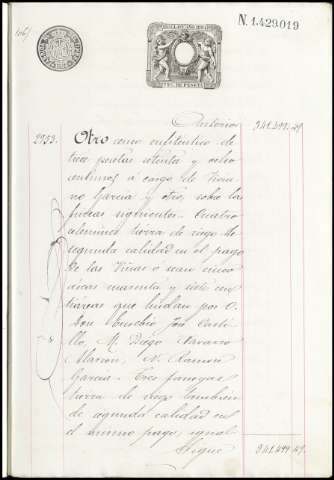 N. 1.429.019
Anterior 341.499.49
2953. Otro como enfiteutico de
tres pesetas setenta y ocho
centimos á cargo de
Garcia y otros, sobre las
fincas siguientes. Cuatro
tierra de riego de
segunda calidad en el pago
de las Viñas ó sean cinco
areas cuarenta y siete cen-
tiáreas que lindan por O.
Don Eusebio José Casti-
llo, M. Diego Navarro
Alarcon, N. Ramon
Garcia. Tres fanegas
tierra de riego tambien
de segunda calidad en
el mismo pago, igual
Sigue 341.499.49.